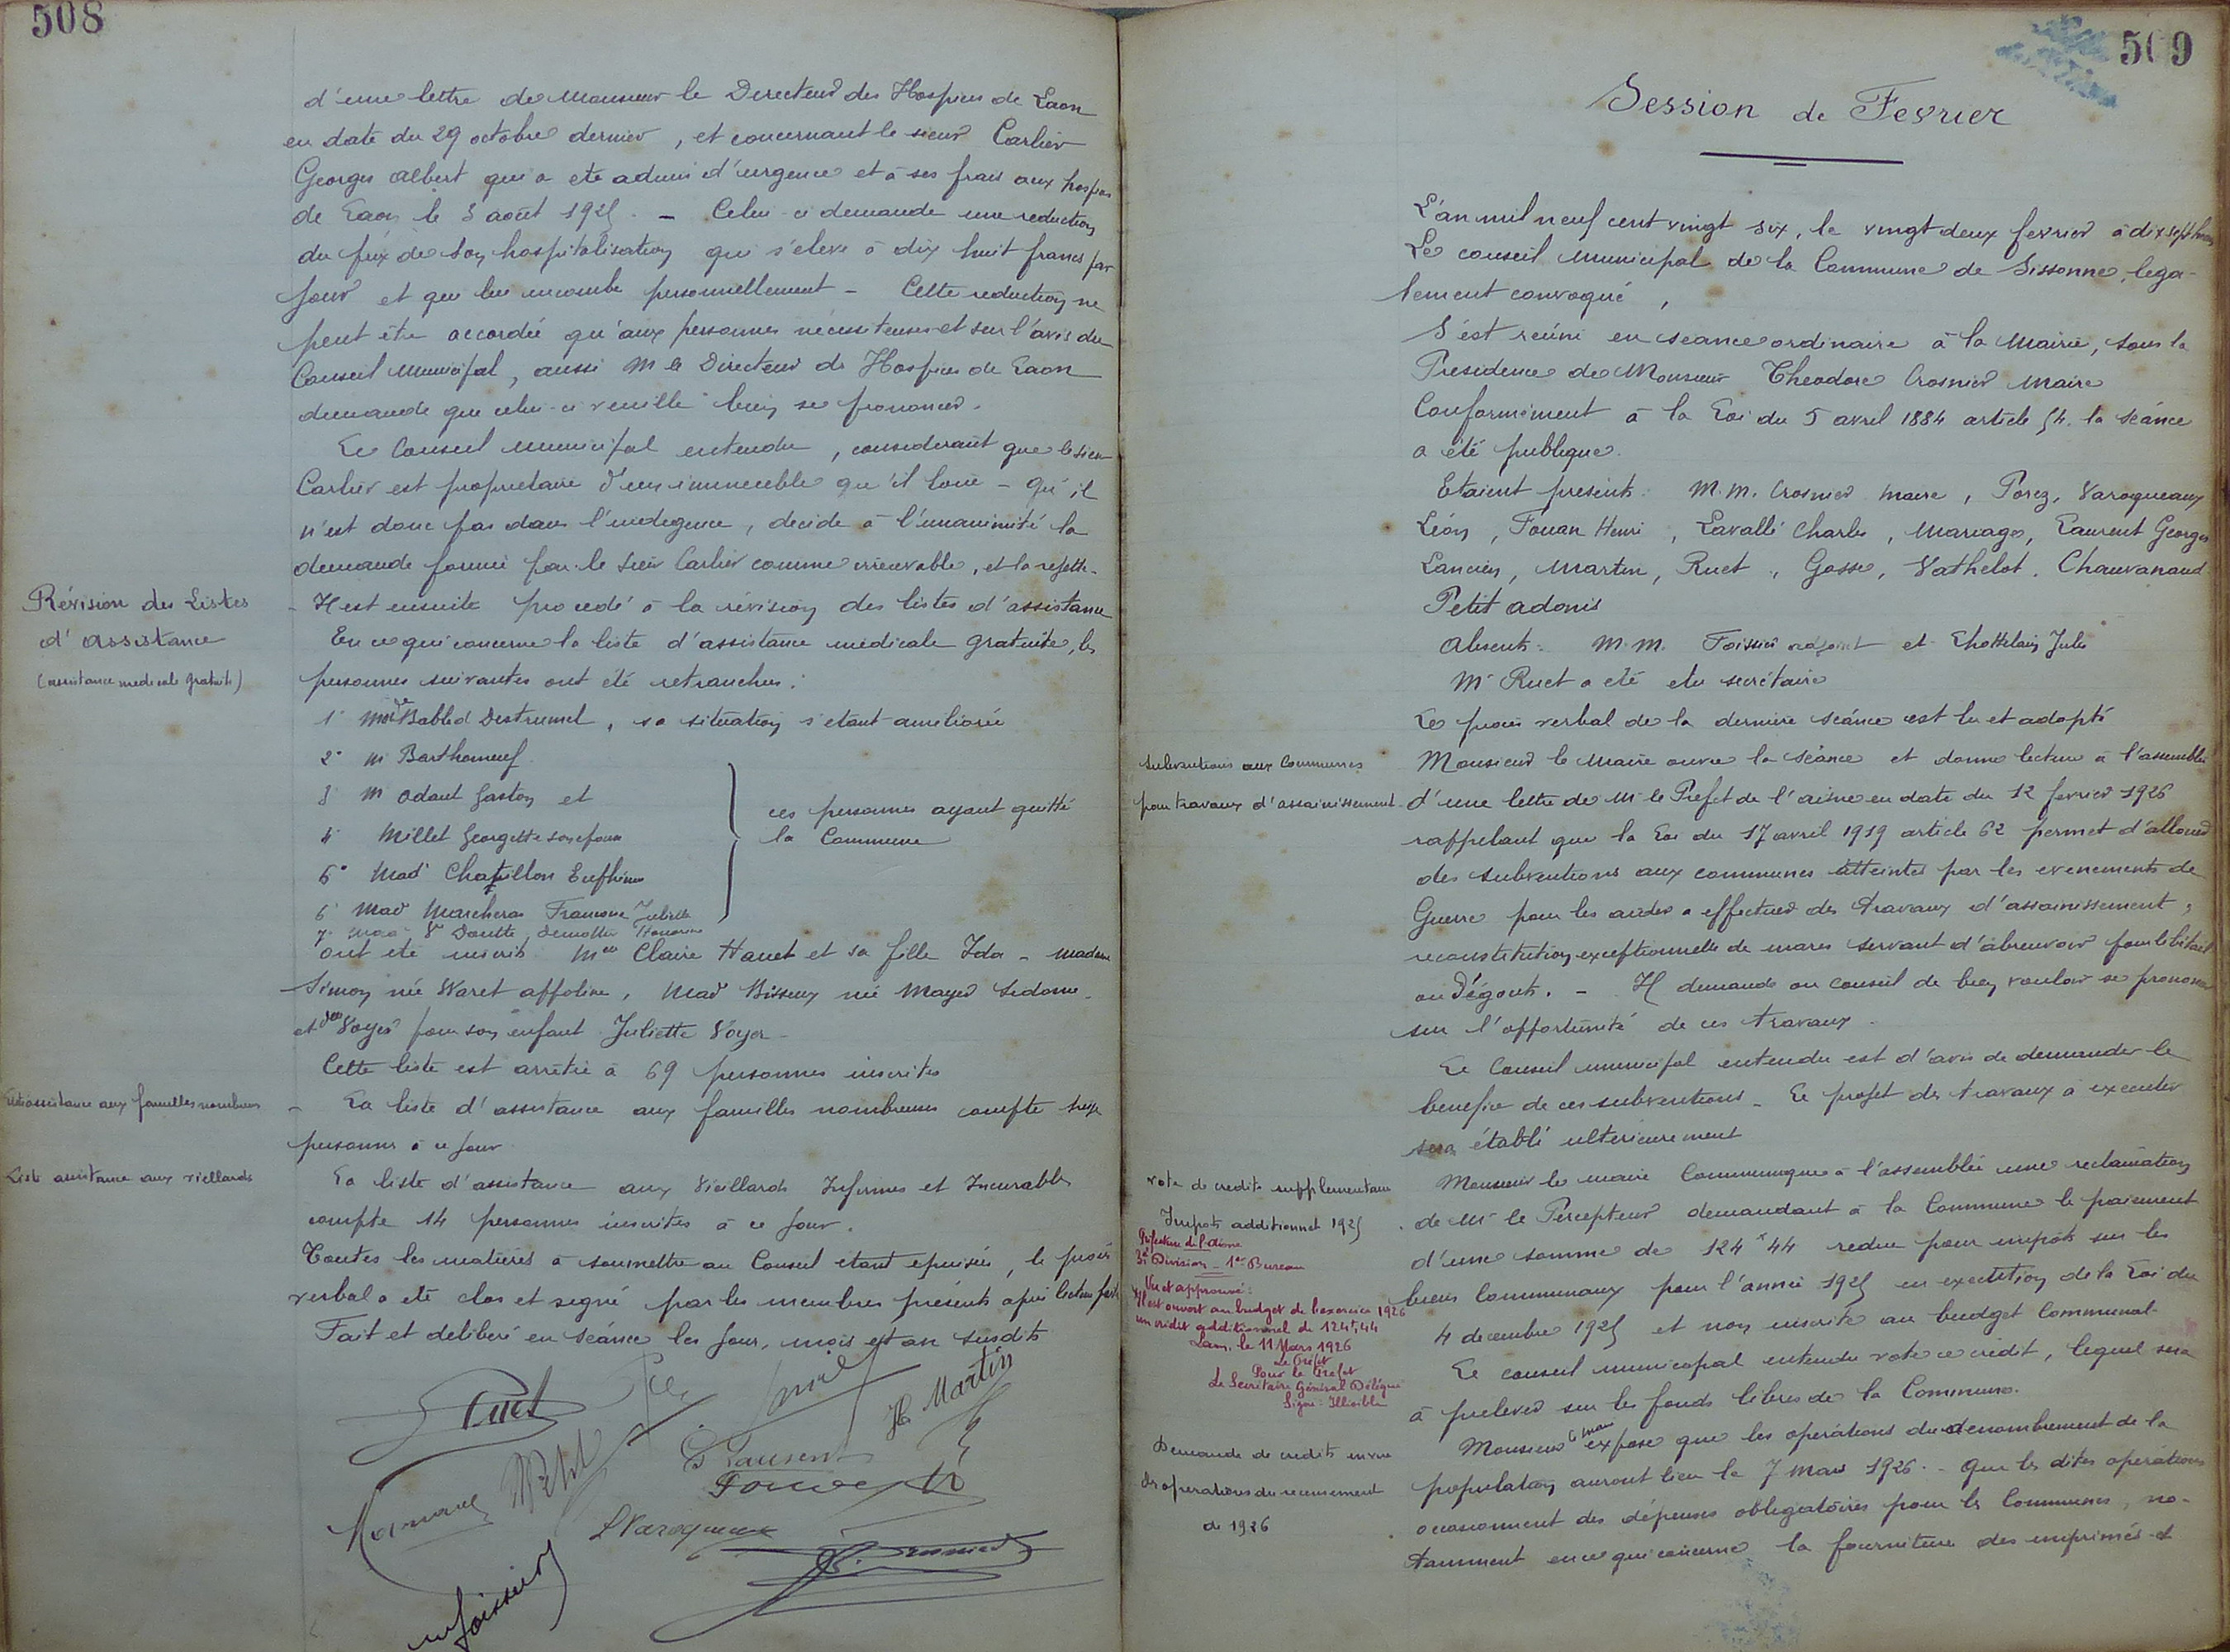 508
d'une lettre de Monsieur le Directeur des Hospices de Laon
en date du 29 octobre dernier, et concernant le sieur Carlier
Georges Albert qui a ete admis d'urgence et à ses frais aux hospices
de Laon le 3 août 1925. - Celui-ci demande une reduction
du prix de son hospitalisation qui s'eleve à dix huit francs par
jour et qui lui incombe personnellement - Cette reduction ne
peut être accordée qu'aux personnes nécessiteuses et sur l'avis du
Conseil Municipal, aussi M le Directeur des Hospices de Laon
demande que celui-ci veuille bien se prononcer.
Le Conseil municipal entendu, considerant que le sieur
Carlier est proprietaire d'un immeuble qu'il loue - qu'il
n'est donc pas dans l'indigence, decide à l'unanimité la
demande formée par le sieur Carlier comme irrecevable, et la rejette.
Révision des Listes
d'assistance
(assistance medicale gratuite)
- Il est ensuite procedé à la révision des listes d'assistance
En ce qui concerne la liste d'assistance médicale gratuite, les
personnes suivantes ont été retranchées :
1° Babled Destrumel, sa situation s'etant améliorée
2° M Barthomeuf
3 M Odant Gaston et
4° Millet Georgette
ces personnes ayant quitté
la Commune
6° Mad Chapillon
6° Mad Marcheras Francoise Juliette
7°
ont été inscrits Claire Hanet et sa fille Ida - madame
Simon née Waret appoline, Mad née Mayer Sidonie
et Voyer pour son enfant Juliette Voyer -
Cette liste est arrêtée à 69 personnes inscrites
assistance aux familles nombreuses
- La liste d'assistance aux familles nombreuses compte treize
personnes à ce jour
Liste assistance aux viellards
La liste d'assistance aux Vieillards Infirmes et Incurables
compte 14 personnes inscrites à ce jour.
Toutes les matières à soumettre au Conseil etant epuisées, le procès
verbal a ete clos et signé par les membres présents après lecture faite
Fait et deliberé en séance les jour, mois et an susdits
Ruet
H Martin
Petit
G Laurent
Fouan
L Varoqueaux
Crosnier
Foissier
509
Session de Fevrier
L'an mil neuf cent vingt six, le vingt deux fevrier à dix sept heures
Le conseil municipal de la Commune de Sissonne, lega-
lement convoqué,
S'est reúni en seance ordinaire à la Mairie, sous la
Presidence de Monsieur Theodore Crosnier Maire
Conformément à la Loi du 5 avril 1884 article 54. la séance
a été publique.
Etaient presents : M.M. Crosnier maire, Porez, Varoqueaux
Léon, Fouan Henri, Lavallé Charles, Mariage, Laurent Georges
Lancien, Martin, Ruet, Gosse, Vathelot, Chauvanaud
Petit adonis
Absents : M.M. Foissier adjoint et Jules
Mr Ruet a eté elu secrétaire
Le proces verbal de la derniere séance est lu et adopté
Subventions aux Communes
pour travaux d'assainissement
Monsieur le Maire ouvre la séance et donne lecture à l'assemblée
d'une lettre de Mr le Prefet de l'aisne en date du 12 fevrier 1926
rappelant que la Loi du 17 avril 1919 article 62 permet d'allouer
des subventions aux communes atteintes par les evenements de
Guerre pour les aider a effectuer des travaux d'assainissement,
reconstitution exceptionnelle de mares servant d'abreuvoir pour le bétail
ou d'égouts. - Il demande au conseil de bien vouloir se prononcer
sur l'opportunité de ces travaux.
Le Conseil municipal entendu est d'avis de demander le
benefice de ces subventions - Le projet des travaux à executer
sera établi ulterieurement
vote de credits supplementaires
Impots additionnel 1925
Monsieur le maire Communique à l'assemblée une reclamation
de Mr le Percepteur demandant à la Commune le paiement
d'une somme de 124f 44 redue pour impots sur les
biens Communaux pour l'année 1925 en execution de la Loi du
4 decembre 1925 et non inscrite au budget Communal
Préfecture de l'Aisne
3e Division - 1er Bureau
Vu et approuvé :
Il est ouvert au budget de l'exercice 1926
un crédit additionnel de 124f,44
Laon, le 11 Mars 1926
Le Préfet
Pour le Préfet
Le Secrétaire Général Délégué
Signé : Illisible
Le conseil municipal entendu vote ce crédit, lequel sera
à prelever sur les fonds libres de la Commune.
Demande de credits en vue
des operations du recensement
de 1926
Monsieur le maire expose que les opérations du denombrement de la
population auront lieu le 7 Mars 1926 - que les dites operations
occasionnent des dépenses obligatoires pour les Communes, no-
tamment en ce qui concerne la fourniture des imprimés et